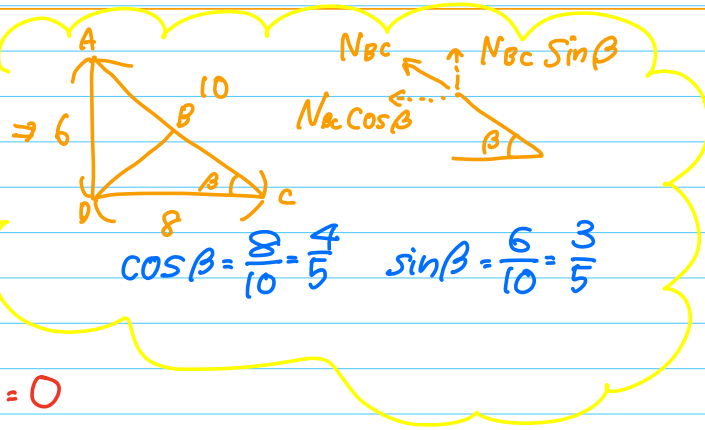 A
10
B
⇒ 6
β
D
C
8
N_BC
N_BC sinβ
N_BC cosβ
β
cosβ = 8/10 = 4/5
sinβ = 6/10 = 3/5
= 0